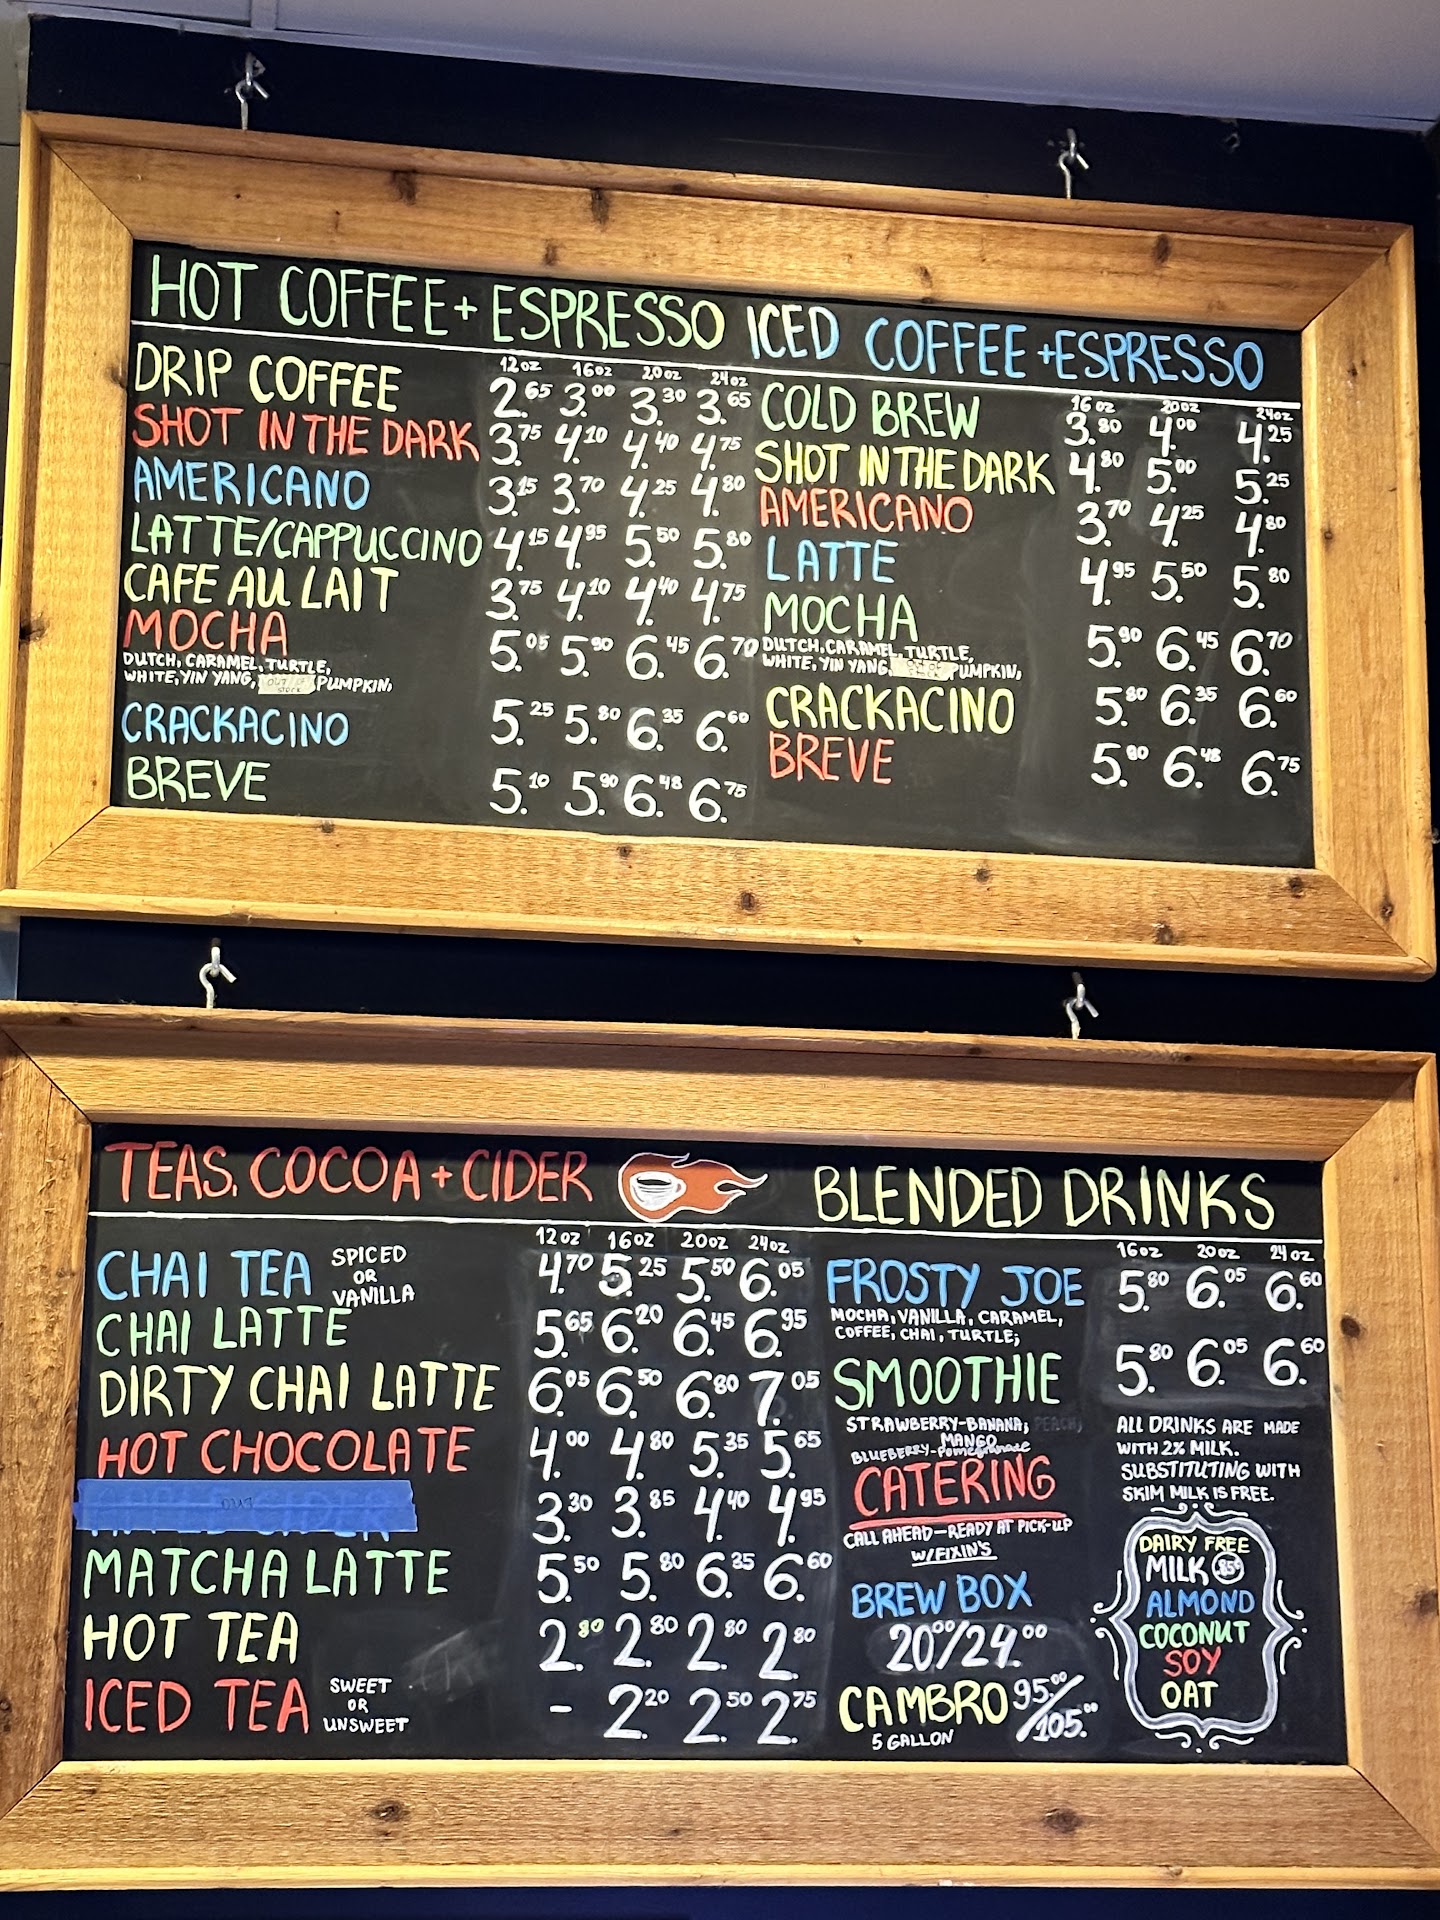 HOT COFFEE + ESPRESSO
12oz 16oz 20oz 24oz
DRIP COFFEE 2.65 3.00 3.30 3.65
SHOT IN THE DARK 3.75 4.10 4.40 4.75
AMERICANO 3.15 3.70 4.25 4.80
LATTE/CAPPUCCINO 4.15 4.95 5.50 5.80
CAFE AU LAIT 3.75 4.10 4.40 4.75
MOCHA 5.05 5.90 6.45 6.70
DUTCH, CARAMEL, TURTLE,
WHITE, YIN YANG, OUT OF STOCK PUMPKIN,
CRACKACINO 5.25 5.80 6.35 6.60
BREVE 5.10 5.90 6.48 6.75
ICED COFFEE + ESPRESSO
16oz 20oz 24oz
COLD BREW 3.80 4.00 4.25
SHOT IN THE DARK 4.80 5.00 5.25
AMERICANO 3.70 4.25 4.80
LATTE 4.95 5.50 5.80
MOCHA 5.90 6.45 6.70
DUTCH, CARAMEL, TURTLE,
WHITE, YIN YANG, PUMPKIN,
CRACKACINO 5.80 6.35 6.60
BREVE 5.90 6.48 6.75
TEAS, COCOA + CIDER
12oz 16oz 20oz 24oz
CHAI TEA SPICED OR VANILLA 4.70 5.25 5.50 6.05
CHAI LATTE 5.65 6.20 6.45 6.95
DIRTY CHAI LATTE 6.05 6.50 6.80 7.05
HOT CHOCOLATE 4.00 4.80 5.35 5.65
OUT 3.30 3.85 4.40 4.95
MATCHA LATTE 5.50 5.80 6.35 6.60
HOT TEA 2.80 2.80 2.80 2.80
ICED TEA SWEET OR UNSWEET - 2.20 2.50 2.75
BLENDED DRINKS
16oz 20oz 24oz
FROSTY JOE 5.80 6.05 6.60
MOCHA, VANILLA, CARAMEL,
COFFEE, CHAI, TURTLE;
SMOOTHIE 5.80 6.05 6.60
STRAWBERRY-BANANA, PEACH,
MANGO
BLUEBERRY-Pomegranate
CATERING
CALL AHEAD-READY AT PICK-UP
W/FIXIN'S
BREW BOX
20.00/24.00
CAMBRO 95.00/105.00
5 GALLON
ALL DRINKS ARE MADE
WITH 2% MILK.
SUBSTITUTING WITH
SKIM MILK IS FREE.
DAIRY FREE
MILK .85¢
ALMOND
COCONUT
SOY
OAT